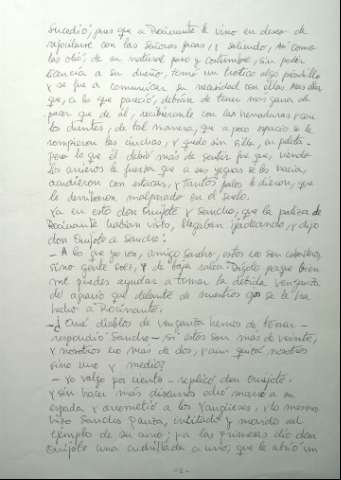 sucedió, pues que a Rocinante le vino en deseo de
refocilarse con las señoras jacas, y saliendo, así como
las olió, de su natural paso y costumbre, sin pedir
licencia a su dueño, tomó un trotico algo picadillo
y se fue a comunicar su necesidad con ellas. Mas ellas
que, a lo que pareció, debían de tener mas gana de
pacer que de él, recibiéronle con las herraduras y con
los dientes, de tal manera, que a poco espacio se le
rompieron las cinchas, y quedó sin silla, en pelota.
Pero lo que él debió más de sentir fue que, viendo
los arrieros la fuerza que a sus yeguas se les hacía,
acudieron con estacas, y tantos palos le dieron, que
le derribaron malparado en el suelo.
Ya en esto don Quijote y Sancho, que la paliza de
Rocinante habían visto, llegaban ijadeando, y dijo
don Quijote a Sancho:
- A lo que yo veo, amigo Sancho, estos no son caballeros,
sino gente soez, y de baja ralea. Dígolo porque bien
me puedes ayudar a tomar la debida venganza
de agravio que delante de nuestros ojos se le ha
hecho a Rocinante.
- ¿Qué diablos de venganza hemos de tomar -
respondió Sancho -, si estos son más de veinte,
y nosotros no más de dos, y aun quizá nosotros
sino uno y medio?
- Yo valgo por ciento - replicó don Quijote.
Y sin hacer más discursos echó mano a su
espada y arremetió a los yangüeses, y lo mesmo
hizo Sancho Panza, incitado y movido del
ejemplo de su amo; y a las primeras dio don
Quijote una cuchillada a uno, que le abrió un
-2-